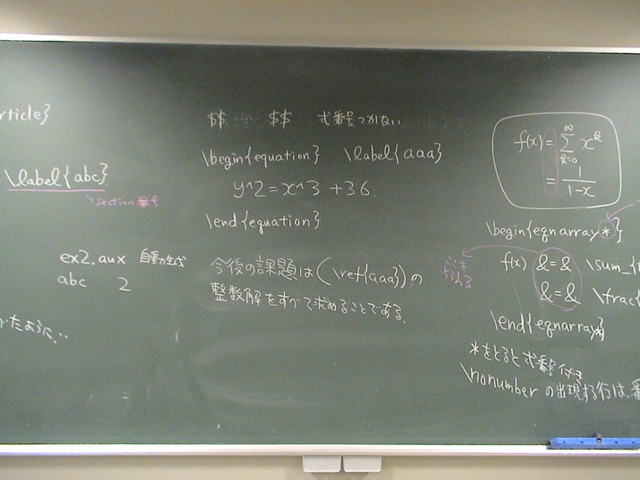 rticle}
\label{abc}
section番号
ex2.aux 自動生成
abc 2
たように..
$$ $$ 式番号つかない
\begin{equation} \label{aaa}
y^2=x^3+36.
\end{equation}
今後の課題は(\ref{aaa})の
整数解をすべて求めることである.
f(x) = ∞ ∑ k=0 x^k
= 1/1-x
\begin{eqnarray*}
f(x) &=& \sum_{
&=& \frac
\end{eqnarray*}
ここを
そろえる
*をとると式番号付き
\nonumber の出現する行は、番